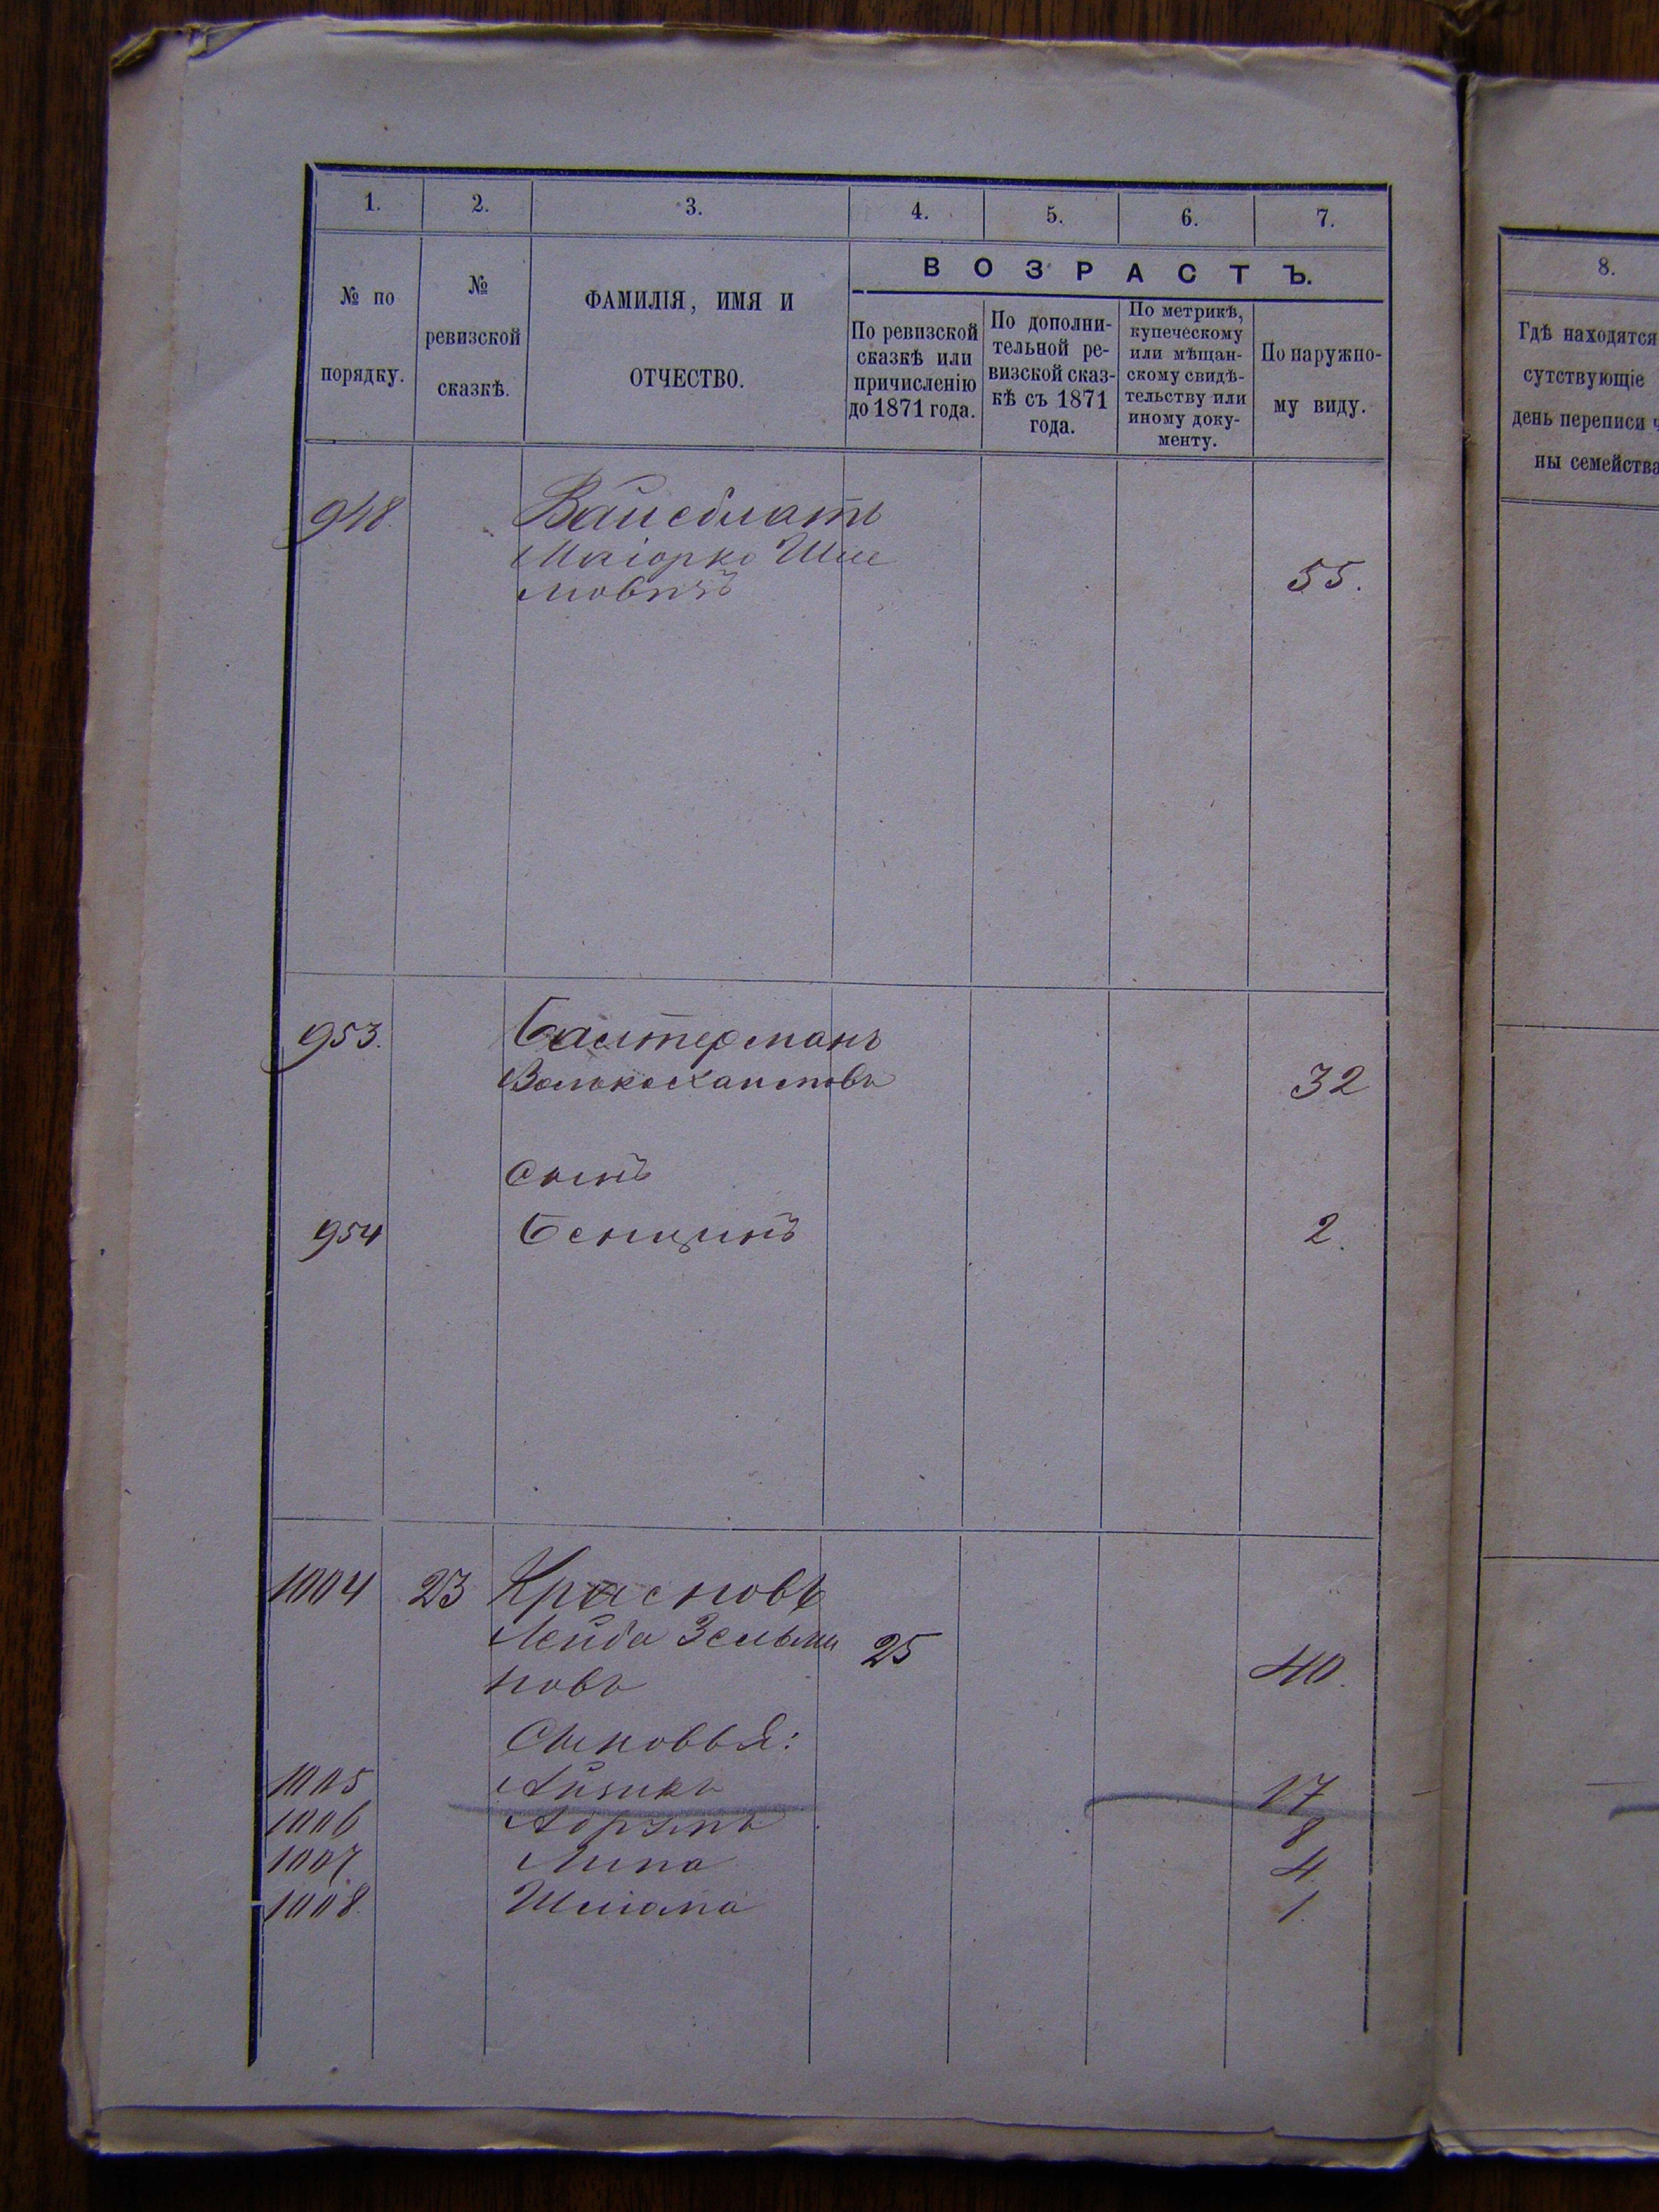 1. 2. 3. 4. 5. 6. 7.
№ по порядку.
№ ревизской сказкѣ.
ФАМИЛІЯ, ИМЯ И ОТЧЕСТВО.
ВОЗРАСТЪ.
По ревизской сказкѣ или причисленію до 1871 года.
По дополни-
тельной ре-
визской сказ-
кѣ съ 1871
года.
По метрикѣ,
купеческому
или мѣщан-
скому свидѣ-
тельству или
иному доку-
менту.
По наружно-
му виду.
948. Вайсблатъ
Маіорко Шле
мовичъ 55.
953. Балтерманъ
32
Сынъ
954 Бенцинъ 2.
1004 23 Красновъ
Лейба Зельма 25
новъ 40.
Сыновья:
1005 Айзикъ 17
1006 Абрумъ 8
1007. Липа 4.
1008. Шліома 1.
8.
Гдѣ находятся
сутствующіе
день переписи ч
ны семейства